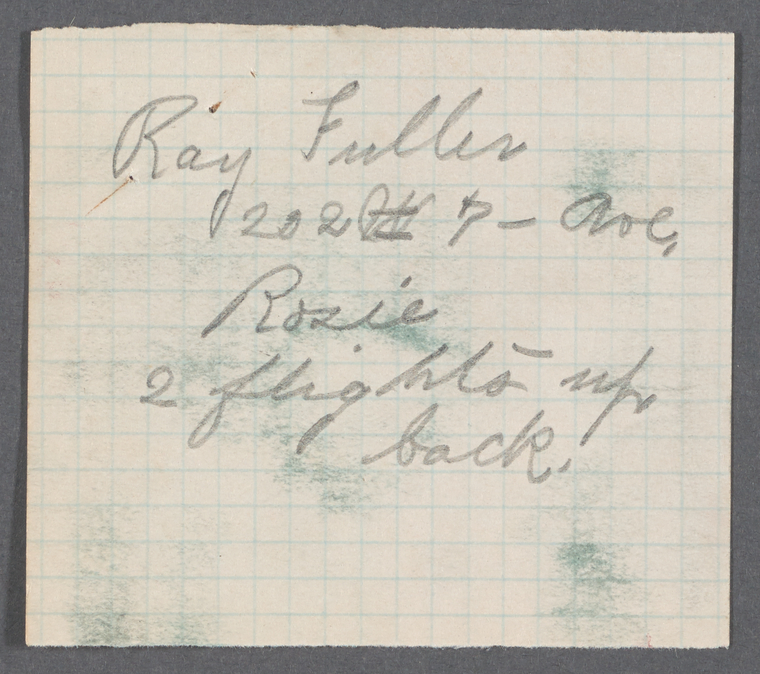 Ray Fuller
202 7 - Ave.
Rosie
2 flights up
back.